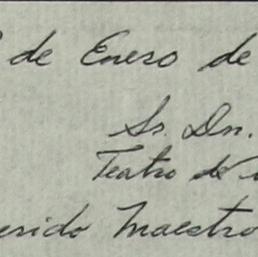 de Enero de
Sr. Dn.
Teatro de
erido Maestro